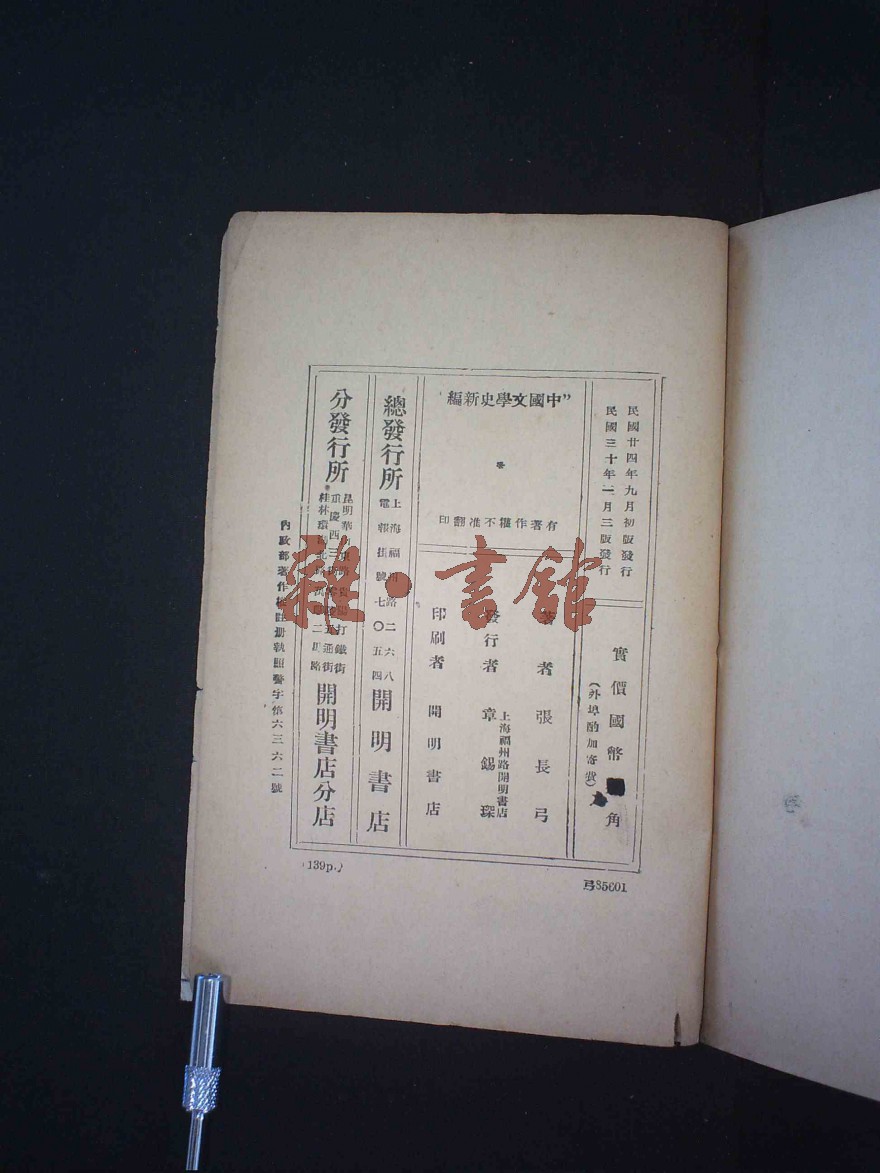 民國廿四年九月初版發行
民國三十年一月三版發行
實價國幣 角
(外埠酌加寄費)
”中國文學史新編
有著作權不准翻印
著者 張長弓
發行者 章錫琛
上海福州路開明書店
印刷者 開明書店
總發行所
上海福州路二六八
電報掛號七〇五四
開明書店
分發行所
開明書店分店
內政部著作權註冊執照警字第六三六二號
(139p.)
弓85601
雜·書館